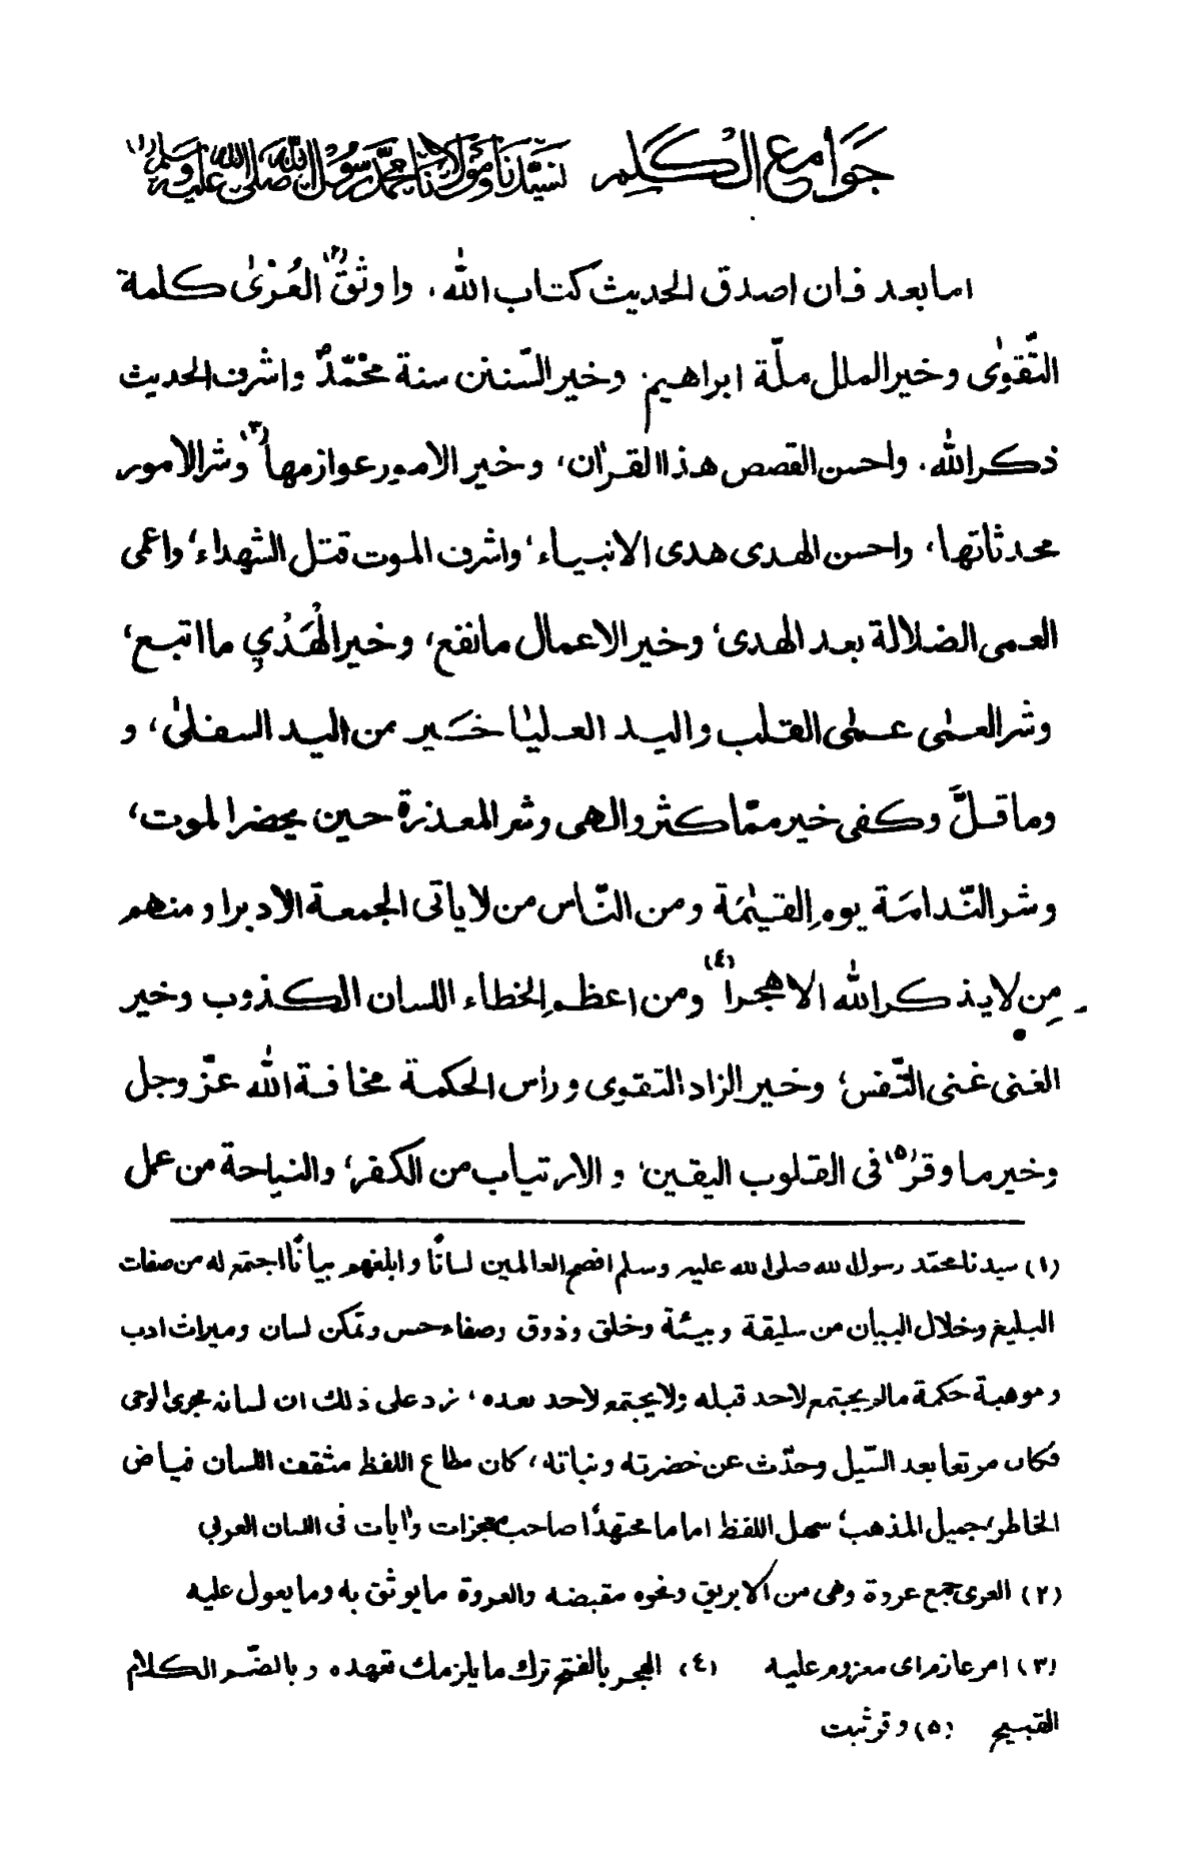 جوامع الكلم لسيدنا ومولانا محمد رسول الله صلى الله عليه وسلم (١)
اما بعد فان اصدق الحديث كتاب الله، واوثق (٢) العُرٰى كلمة
التّقوٰى وخير الملل ملّة ابراهيم، وخير السّنن سنة محمّدٌ واشرف الحديث
ذكر الله، واحسن القصص هذا القرآن، وخير الامور عوازمها (٣) وشر الامور
محدثاتها، واحسن الهدى هدى الانبياء، واشرف الموت قتل الشهداء، واعمى
العمى الضلالة بعد الهدى، وخير الاعمال ما نفع، وخير الْهَدْيِ ما اتبع،
وشر العمٰى عمٰى القلب واليد العليٰا خَير من اليد السفلىٰ، و
وما قلَّ وكفى خير ممّا كثر والهى وشر المعذرة حين يحضر الموت،
وشر النّدامَة يومِ القيٰمَة ومن النّاس من لا ياتى الجمعة الا دبرا ومنهم
مِن لا يذكر الله الا هجراً (٤) ومن اعظمِ الخطاء اللسان الكذوب وخير
الغنى غنى النّفس، وخير الزاد التقوى وراس الحكمة مخافة الله عزّ وجل
وخير ما وقر (٥) فى القلوب اليقين، والارتياب من الكفر، والنياحة من عمل
(١) سيدنا محمّد رسول الله صلى الله عليه وسلم افصح العالمين لسانًا وابلغهم بيانًا اجتمع له من صفات
البليغ وخلال البيان من سليقة وبيئة وخلق وذوق وصفاء حس وتمكن لسان وميراث ادب
وموهبة حكمة مالم يجتمع لاحد قبله ولا يجتمع لاحد بعده، زد على ذلك ان لسانه مجرى الوحى
فكان مرتعا بعد السّيل وحدّث عن خضرته ونباته، كان مطاع اللفظ مثقف اللسان فياض
الخاطر، جميل المذهب، سهل اللفظ اماما مجتهدًا صاحب معجزات وآيات فى اللسان العربى
(٢) العرى جمع عروة وهى من الابريق ونحوه مقبضه والعروة ما يوثق به وما يعول عليه
(٣) امر عازم اى معزوم عليه (٤) الهجر بالفتح ترك ما يلزمك تعهده وبالضّم الكلام
القبيح (٥) وقر ثبت